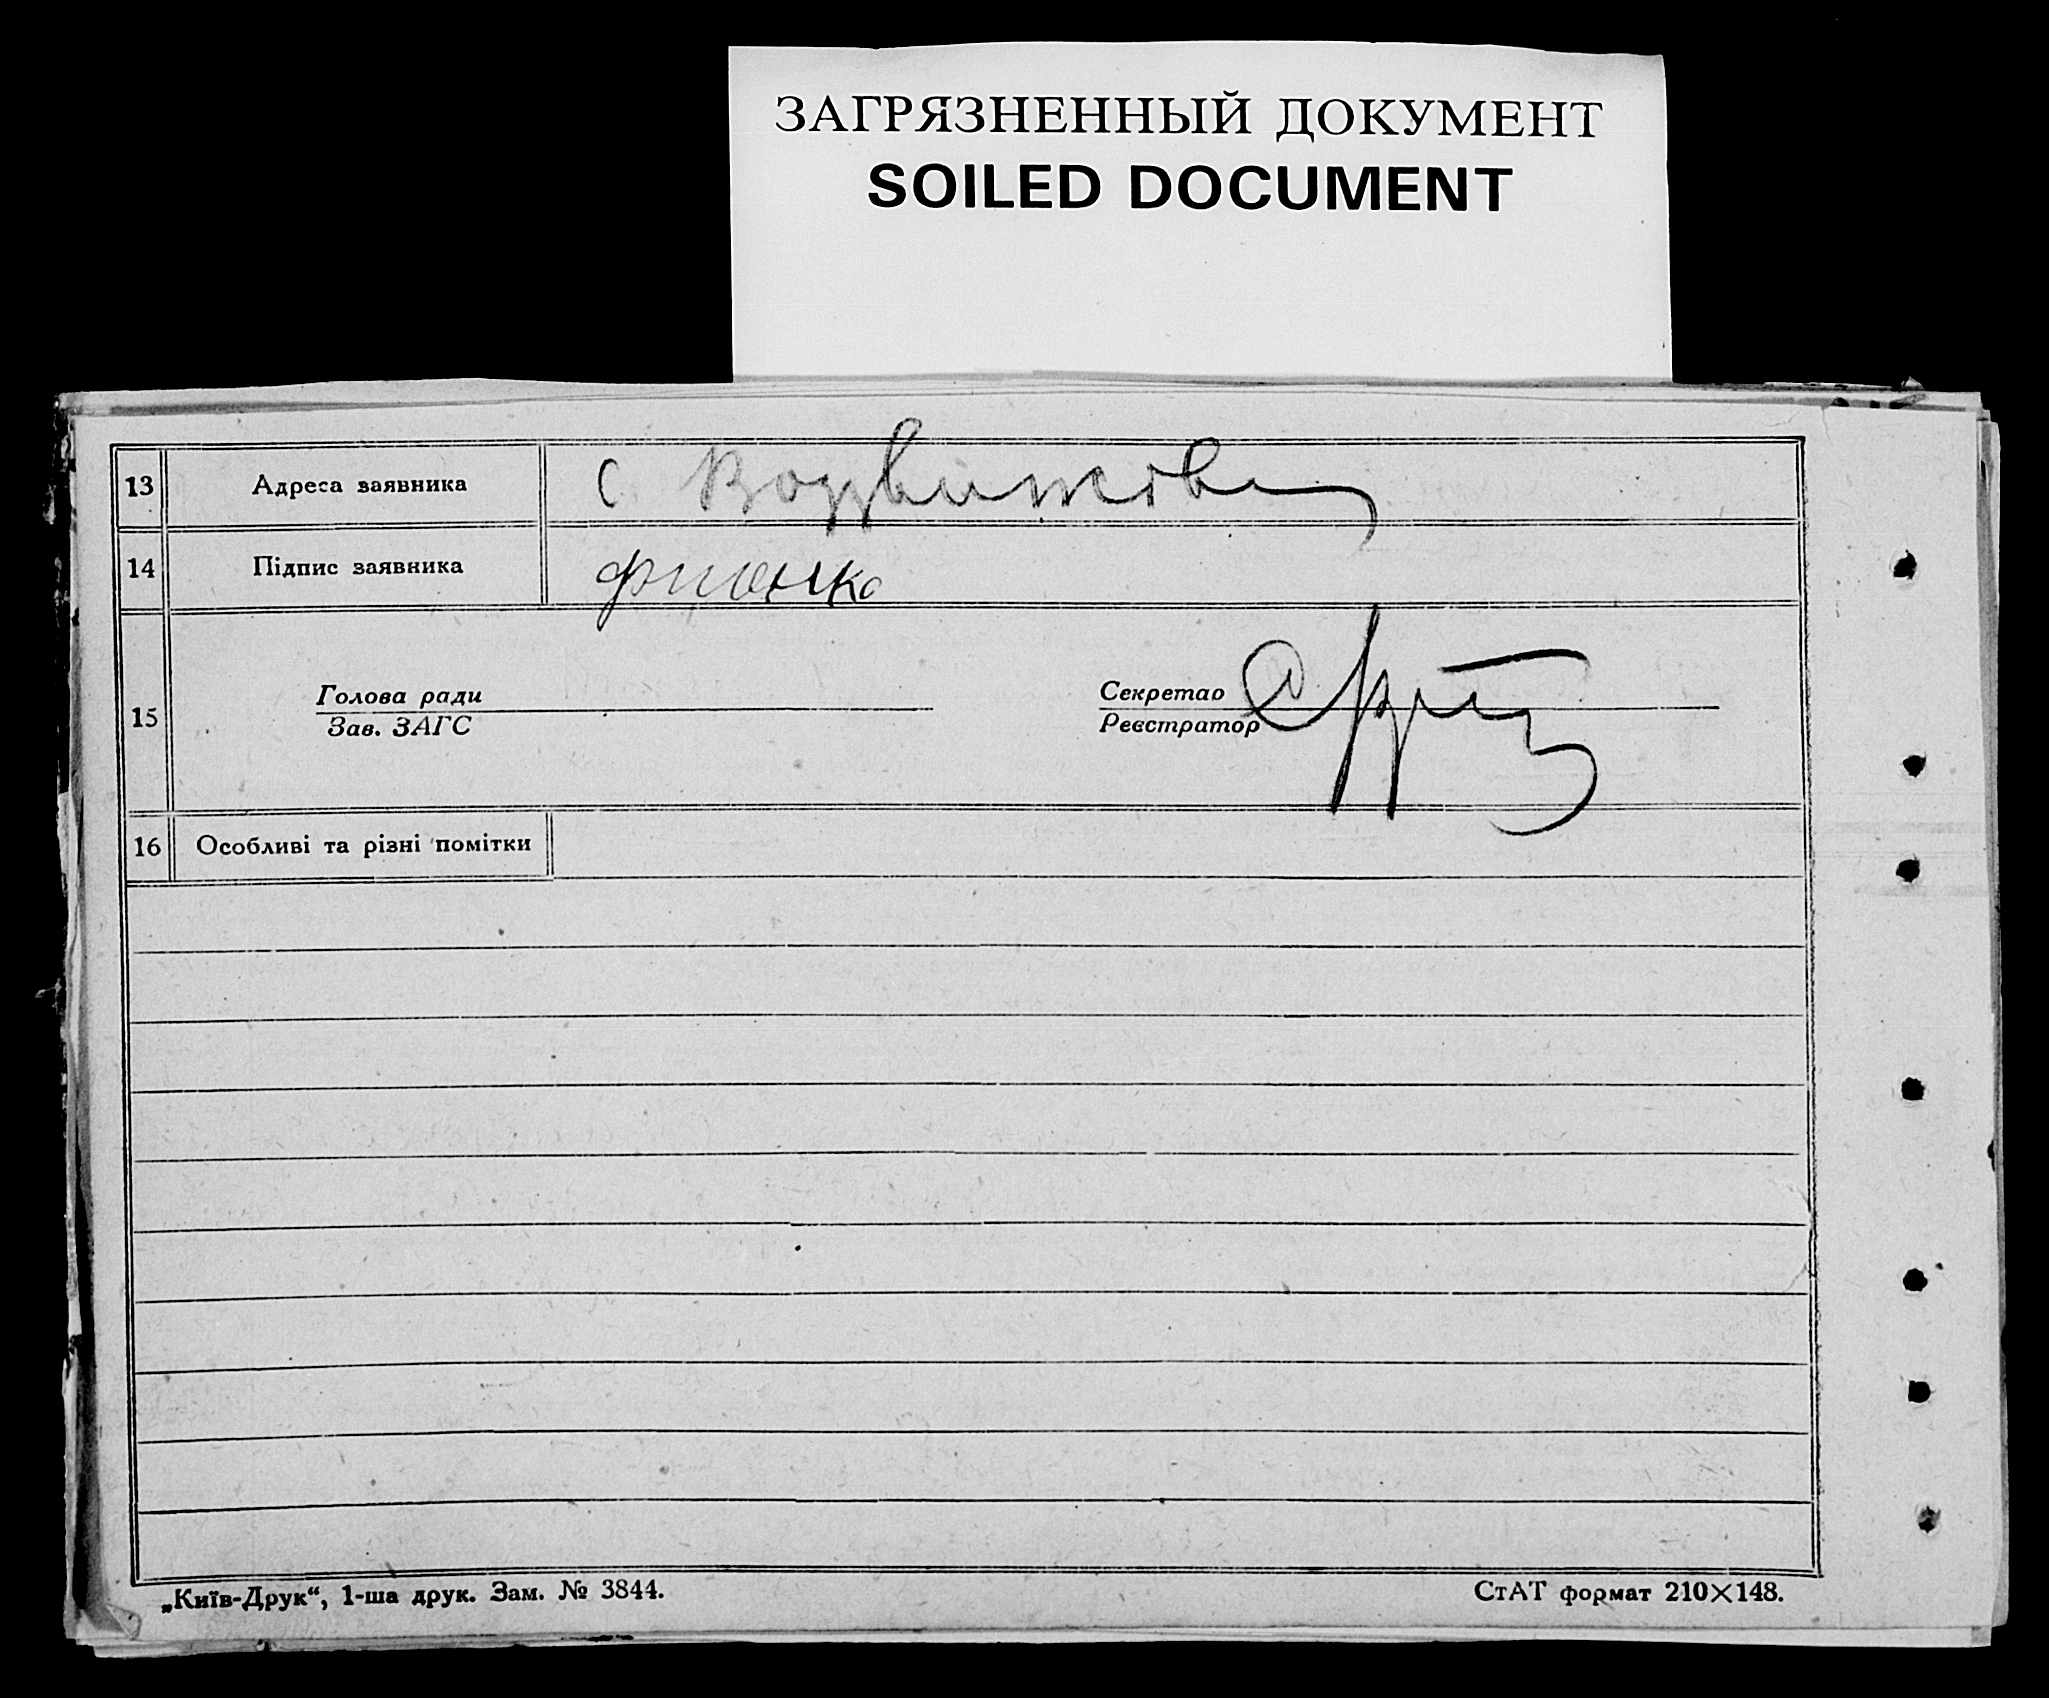 ЗАГРЯЗНЕННЫЙ ДОКУМЕНТ
SOILED DOCUMENT
13 Адреса заявника с
14 Підпис заявника
Голова ради Секретар
15
Зав. ЗАГС Реєстратор
16 Особливі та різні помітки
„Київ-Друк“, 1-ша друк. Зам. № 3844. СтАТ формат 210×148.